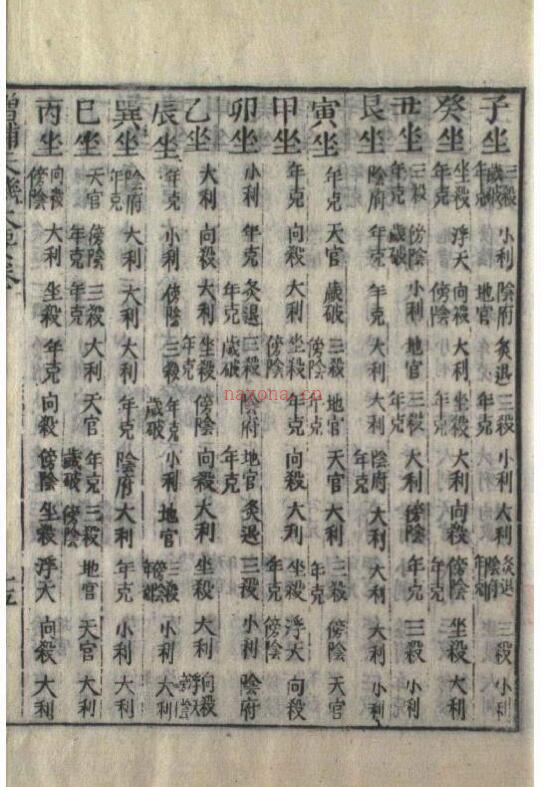 子坐 三殺 歲破 年克 小利 陰府 地官 灸退 三殺 年克 小利 大利 灸退 陰府 年克 三殺 小利
癸坐 坐殺 年克 浮天 向殺 傍陰 大利 坐殺 年克 大利 向殺 傍陰 年克 坐殺 大利
丑坐 三殺 年克 傍陰 歲破 小利 地官 三殺 年克 大利 傍陰 年克 三殺 小利
艮坐 陰府 年克 大利 年克 大利 大利 陰府 年克 大利 大利 大利 小利
寅坐 年克 天官 歲破 三殺 傍陰 地官 年克 天官 大利 三殺 年克 傍陰 天官
甲坐 大利 向殺 大利 坐殺 傍陰 年克 向殺 大利 坐殺 年克 浮天 傍陰 向殺
卯坐 小利 年克 灸退 年克 三殺 歲破 陰府 地官 年克 灸退 三殺 小利 陰府
乙坐 大利 向殺 大利 坐殺 年克 傍陰 向殺 大利 坐殺 大利 向殺 浮天
辰坐 年克 小利 傍陰 三殺 年克 歲破 小利 地官 三殺 小利 大利
巽坐 陰府 年克 大利 大利 大利 年克 陰府 大利 年克 小利 大利
巳坐 天官 傍陰 年克 三殺 年克 大利 天官 年克 歲破 三殺 傍陰 地官 天官 大利
丙坐 向殺 傍陰 大利 坐殺 年克 向殺 傍陰 坐殺 浮天 向殺 大利
nayona.cn